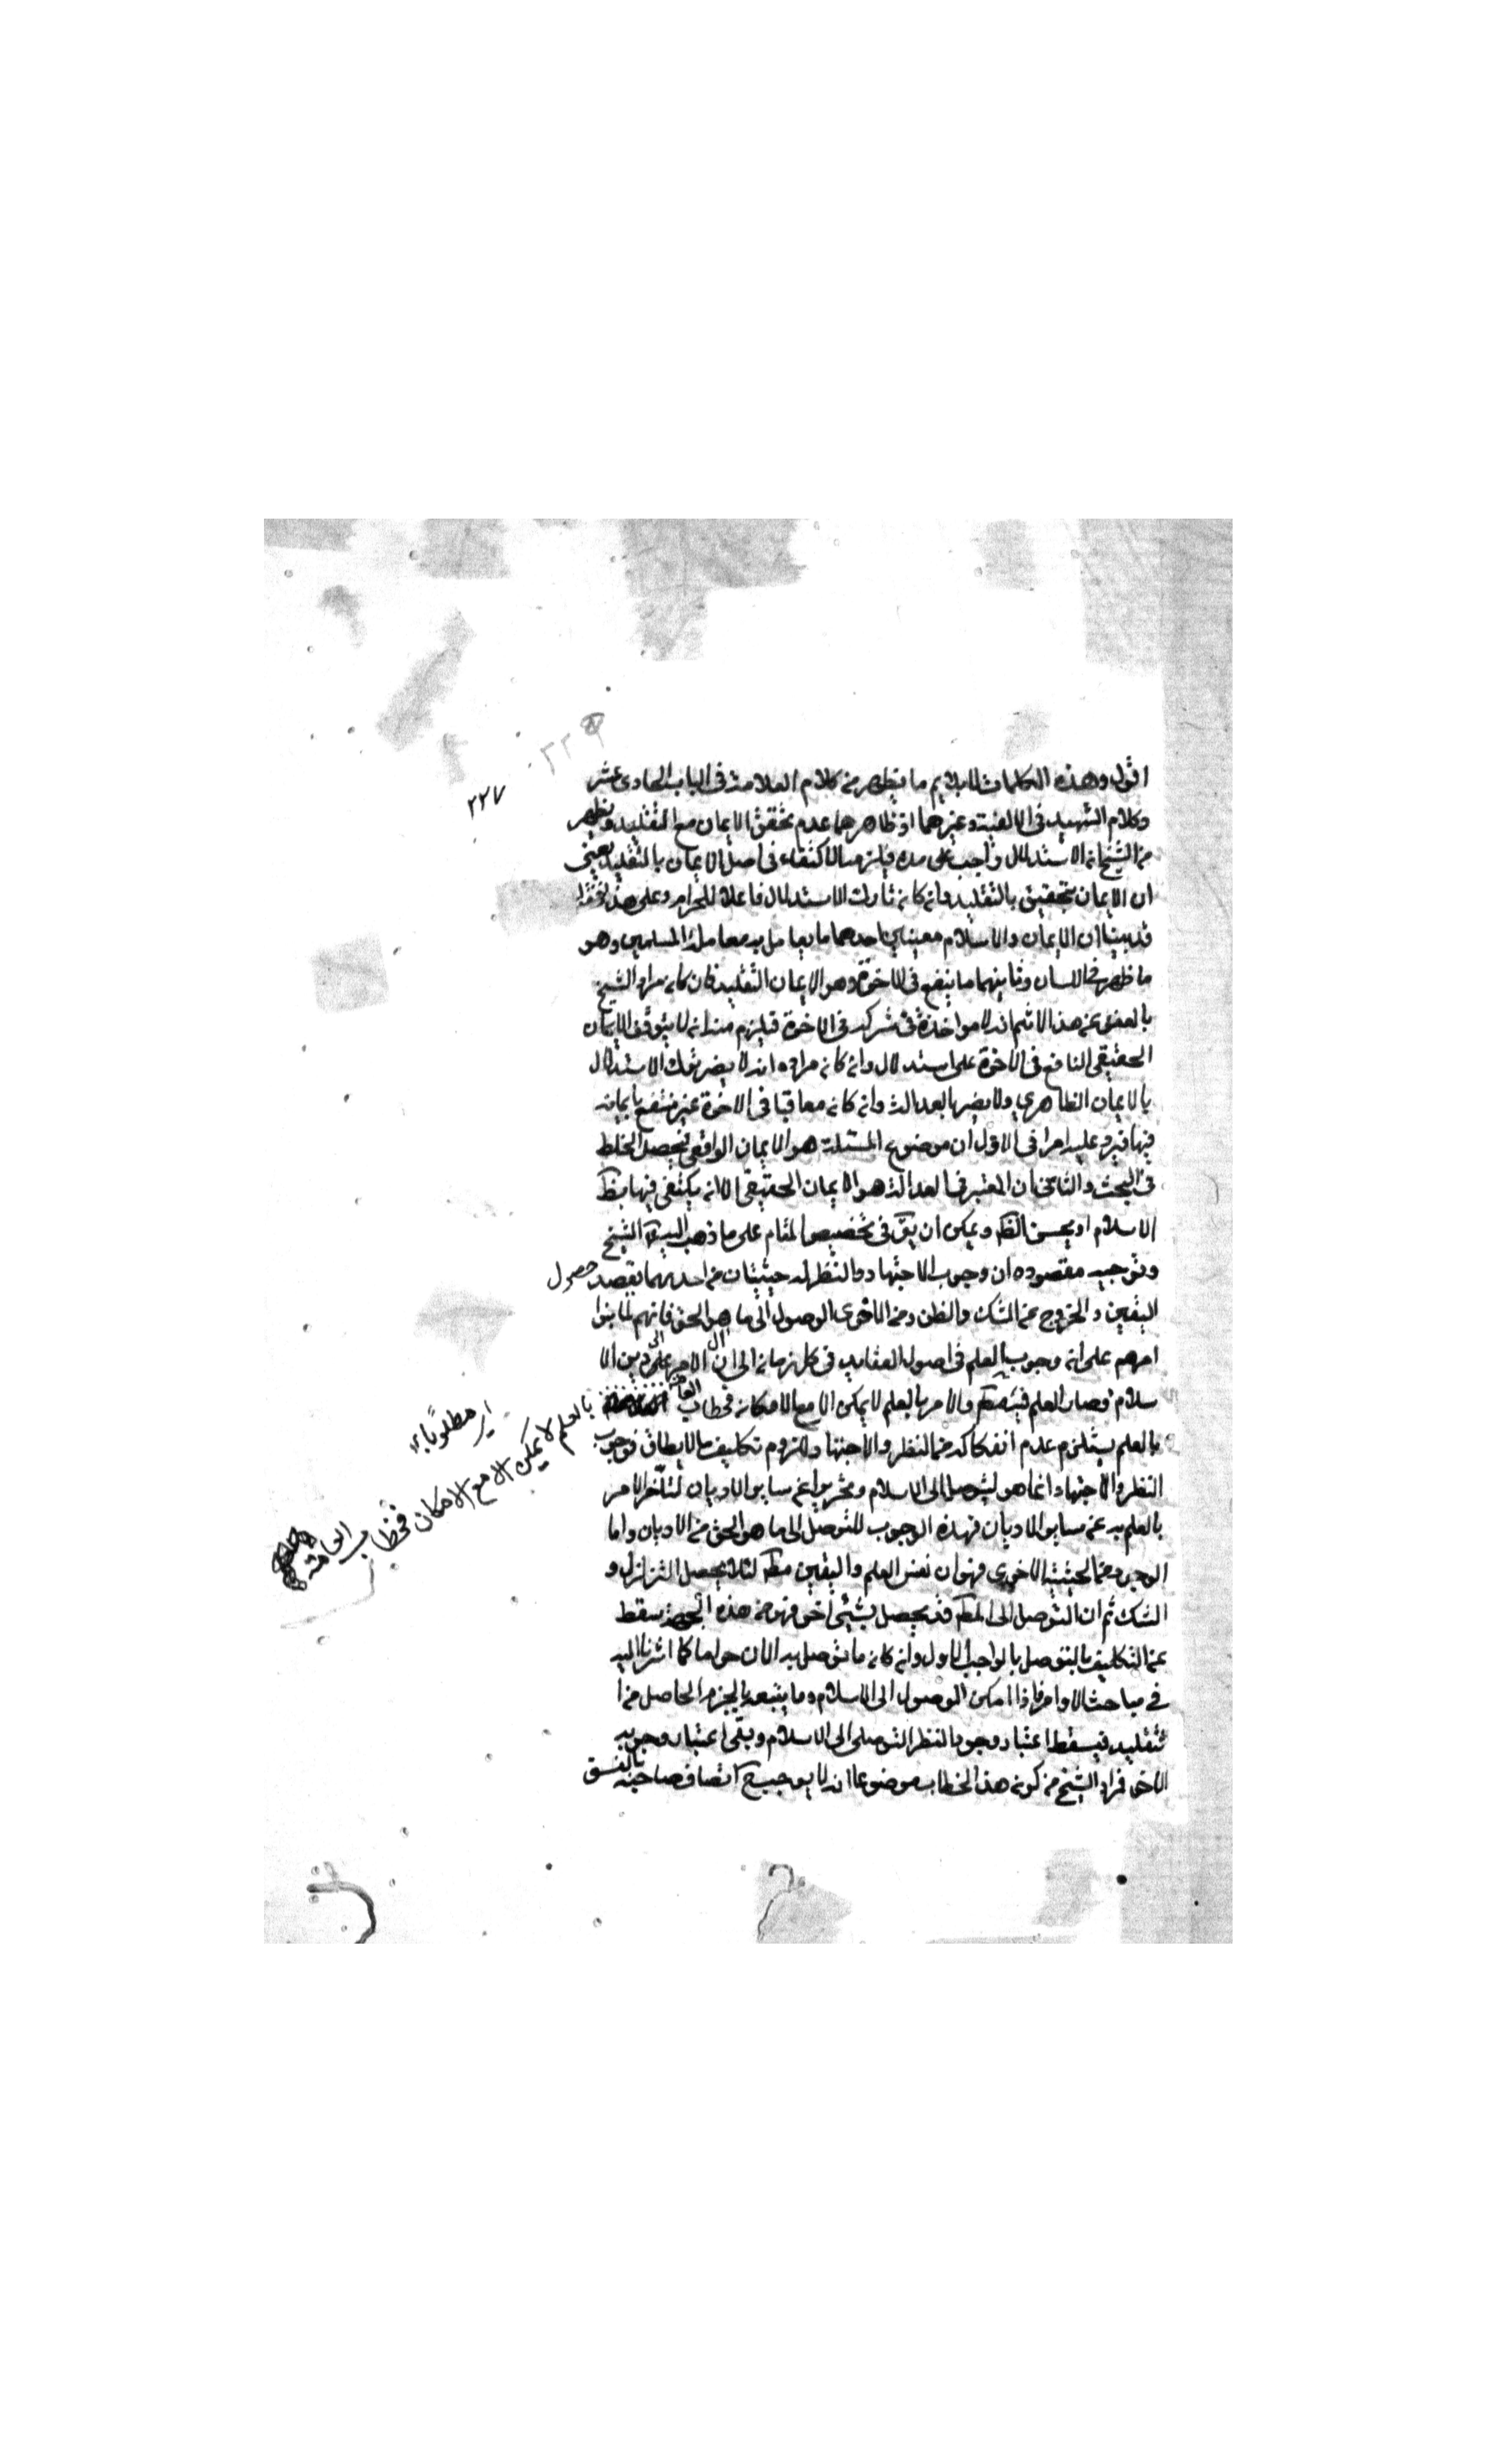 ٢٢٩
٢٢٧
اقول وهذه الكلمات لا يلايم ما يظهر من كلام العلامة في الباب الحادى عشر
وكلام الشهيد في الالفية وغيرهما اذ ظاهرهما عدم تحقق الايمان مع التقليد ويظهر
من الشيخ ان الاستدلال واجب على حده فيلزمه الاكتفاء في اصل الايمان بالتقليد يعني
ان الايمان يتحقق بالتقليد وان كان تارك الاستدلال فاعلا للحرام وعلى هذا
قد بينا ان الايمان والاسلام معنيين احدهما ما يعامل به معاملة المسلمين وهو
ما ظهر في اللسان وثانيهما ما ينفع في الاخرة وهو الايمان التقليد فان كان مراد الشيخ
بالعفو عن هذا الاثم انه لا مواخذة في تركه في الاخرة فيلزم منه انه لا يتوقف الايمان
الحقيقى النافع في الاخرة على استدلال وان كان مراده انه لا يضر ترك الاستدلال
بالايمان الظاهرى ولا يضر بالعدالة وان كان معاقبا في الاخرة غير منتفع بايمانه
فيها فيرد عليه امران الاول ان موضوع المسئلة هو الايمان الواقعى فيحصل الخلط
في البحث والثانى ان المعتبر في العدالة هو الايمان الحقيقى الا انه يكتفى فيها بظ
الاسلام او بحسن الظ ويمكن ان يق في تخصيص المقام على ما ذهب اليه الشيخ
وتوجيه مقصوده ان وجوب الاجتهاد والنظر له حيثيتان من احدهما يقصد حصول
اليقين والخروج عن الشك والظن ومن الاخرى الوصول الى ما هو الحق فانهم لما بنوا
امرهم على ان وجوب العلم في اصول العقايد في كل زمان الى ان ال الامر الى دين الا
سلام وصار العلم والامر بالعلم لا يمكن الا مع الامكان فخطاب العامة
بالعلم يستلزم عدم انفكاكه من النظر والاجتهاد والا لزوم تكليف ما لا يطاق فوجوب
النظر والاجتهاد انما هو ليتوصل الى الاسلام عن ساير الاديان لتاخر الامر
بالعلم به عن ساير الاديان فهذه الوجوب للتوصل الى ما هو الحق من الاديان واما
الوجوب من الحيثية الاخرى فهو ان نفس العلم واليقين مط لئلا يحصل التزلزل و
الشك ثم ان التوصل الى المط قد يحصل بشيئ اخر فهو من هذه الجهة سقط
عنه التكليف بالتوصل بالواجب الاول وان كان ما توصل به الان حراما كما اشرنا اليه
في مباحث الاوامر فاذا امكن الوصول الى الاسلام وما يتبعه بالجزم الحاصل من ا
لتقليد فيسقط اعتبار وجوب النظر التوصلى الى الاسلام وبقى اعتبار وجوبه
الاخر فمراد الشيخ من كون هذا الخطاب موضوعا انه لا يوجب ح اتصاف صاحبه بالفسق
مطلوبا
بالعلم لا يمكن الا مع الامكان فخطاب العامة